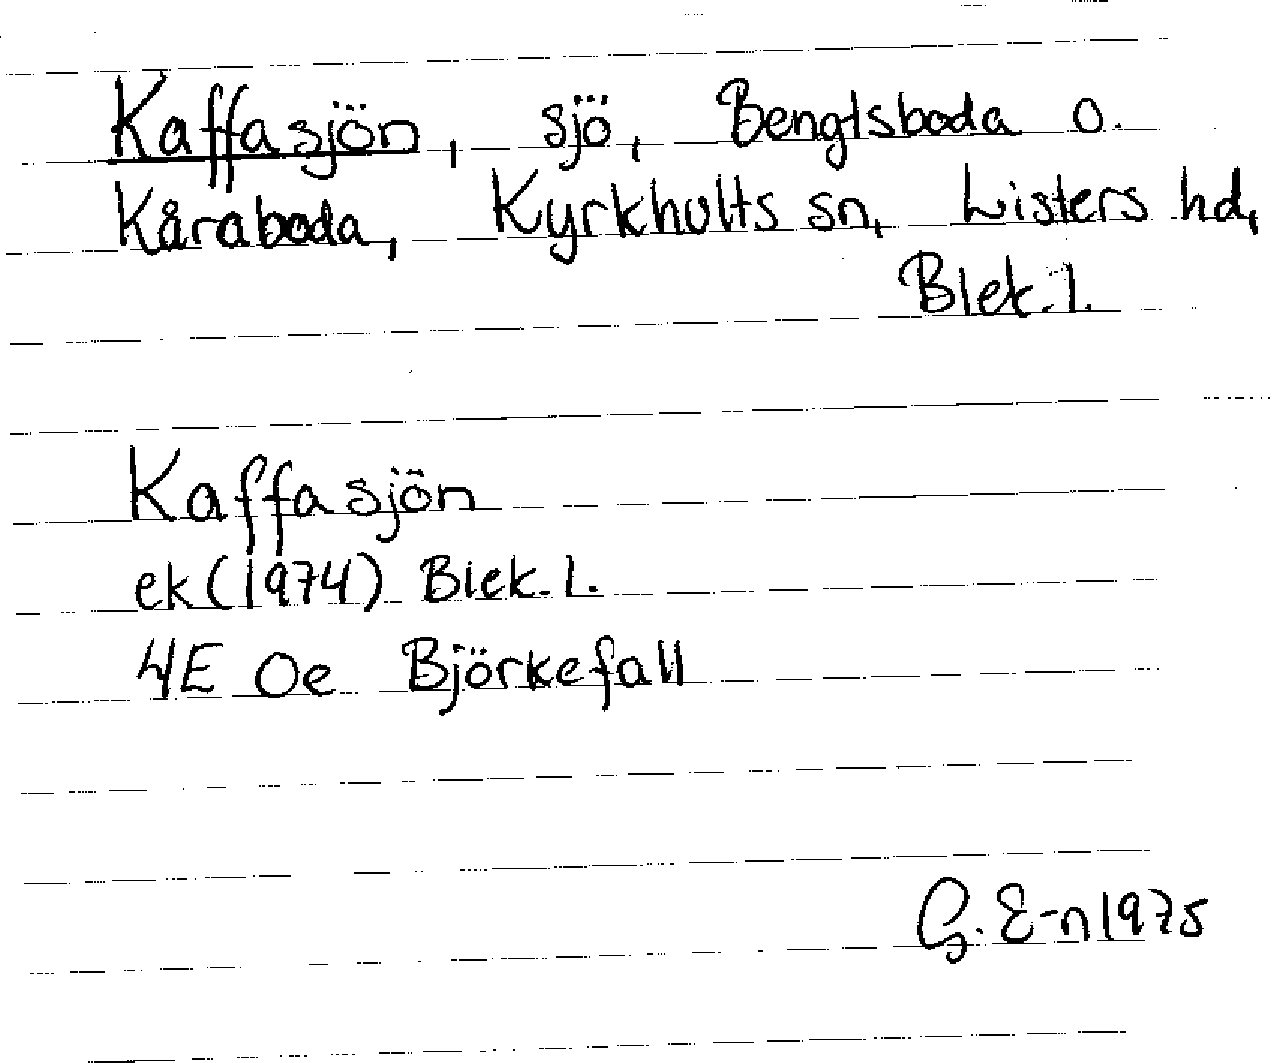 Kaffasjön, sjö, Bengtsboda o.
Kåraboda, Kyrkhults sn, Listers hd,
Blek. l.
Kaffasjön
ek (1974) Blek. l.
4E 0e Björkefall
G. E-n 1975